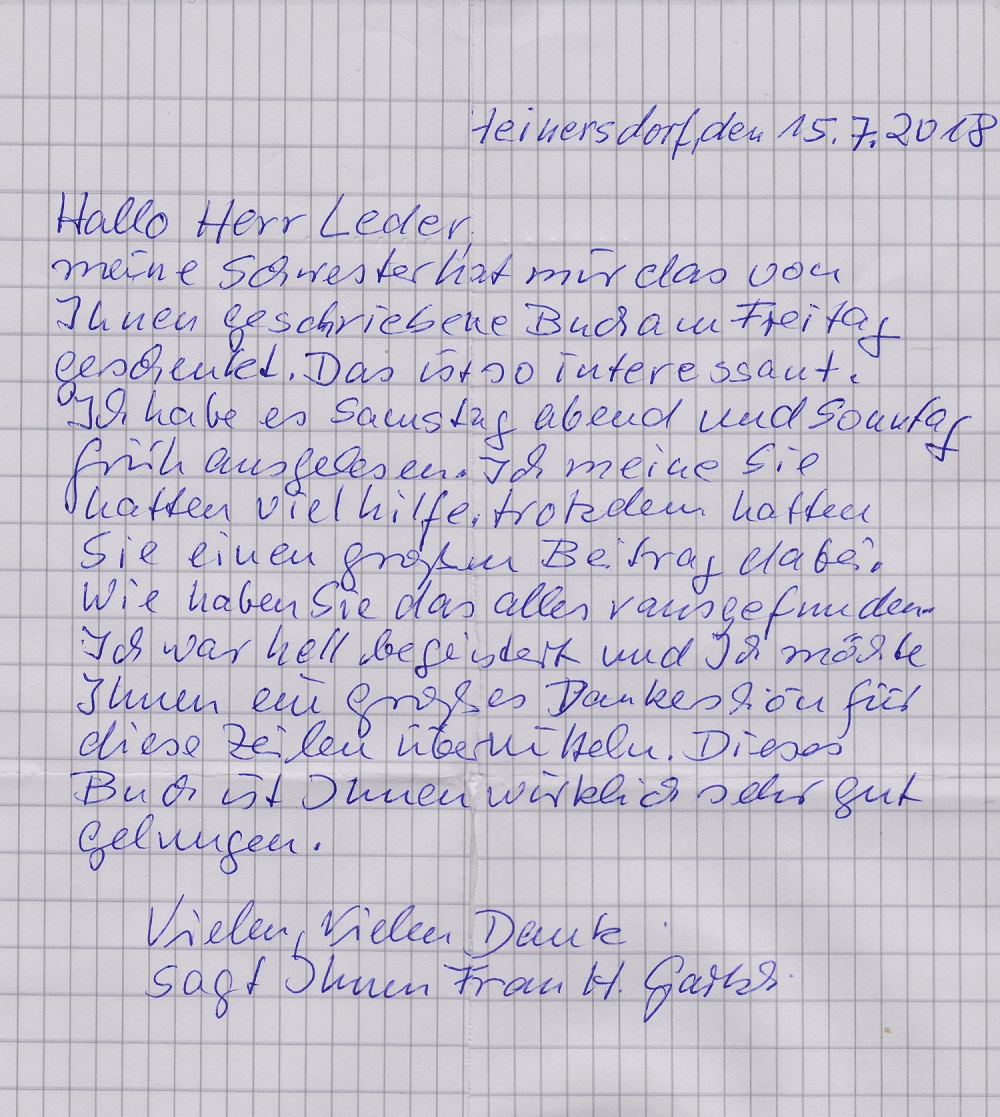 Heinersdorf, den 15.7.2018
Hallo Herr Leder,
meine Schwester hat mir das von
Ihnen geschriebene Buch am Freitag
geschenkt. Das ist so interessant.
Ich habe es Samstag abend und Sonntag
früh ausgelesen. Ich meine Sie
hatten viel hilfe, trotzdem hatten
Sie einen großen Beitrag dabei.
Wie haben Sie das alles rausgefunden.
Ich war hell begeistert und Ich möchte
Ihnen ein großes Dankeschön für
diese Zeilen übermitteln. Dieses
Buch ist Ihnen wirklich sehr gut
gelungen.
Vielen, Vielen Dank
sagt Ihnen Frau H.